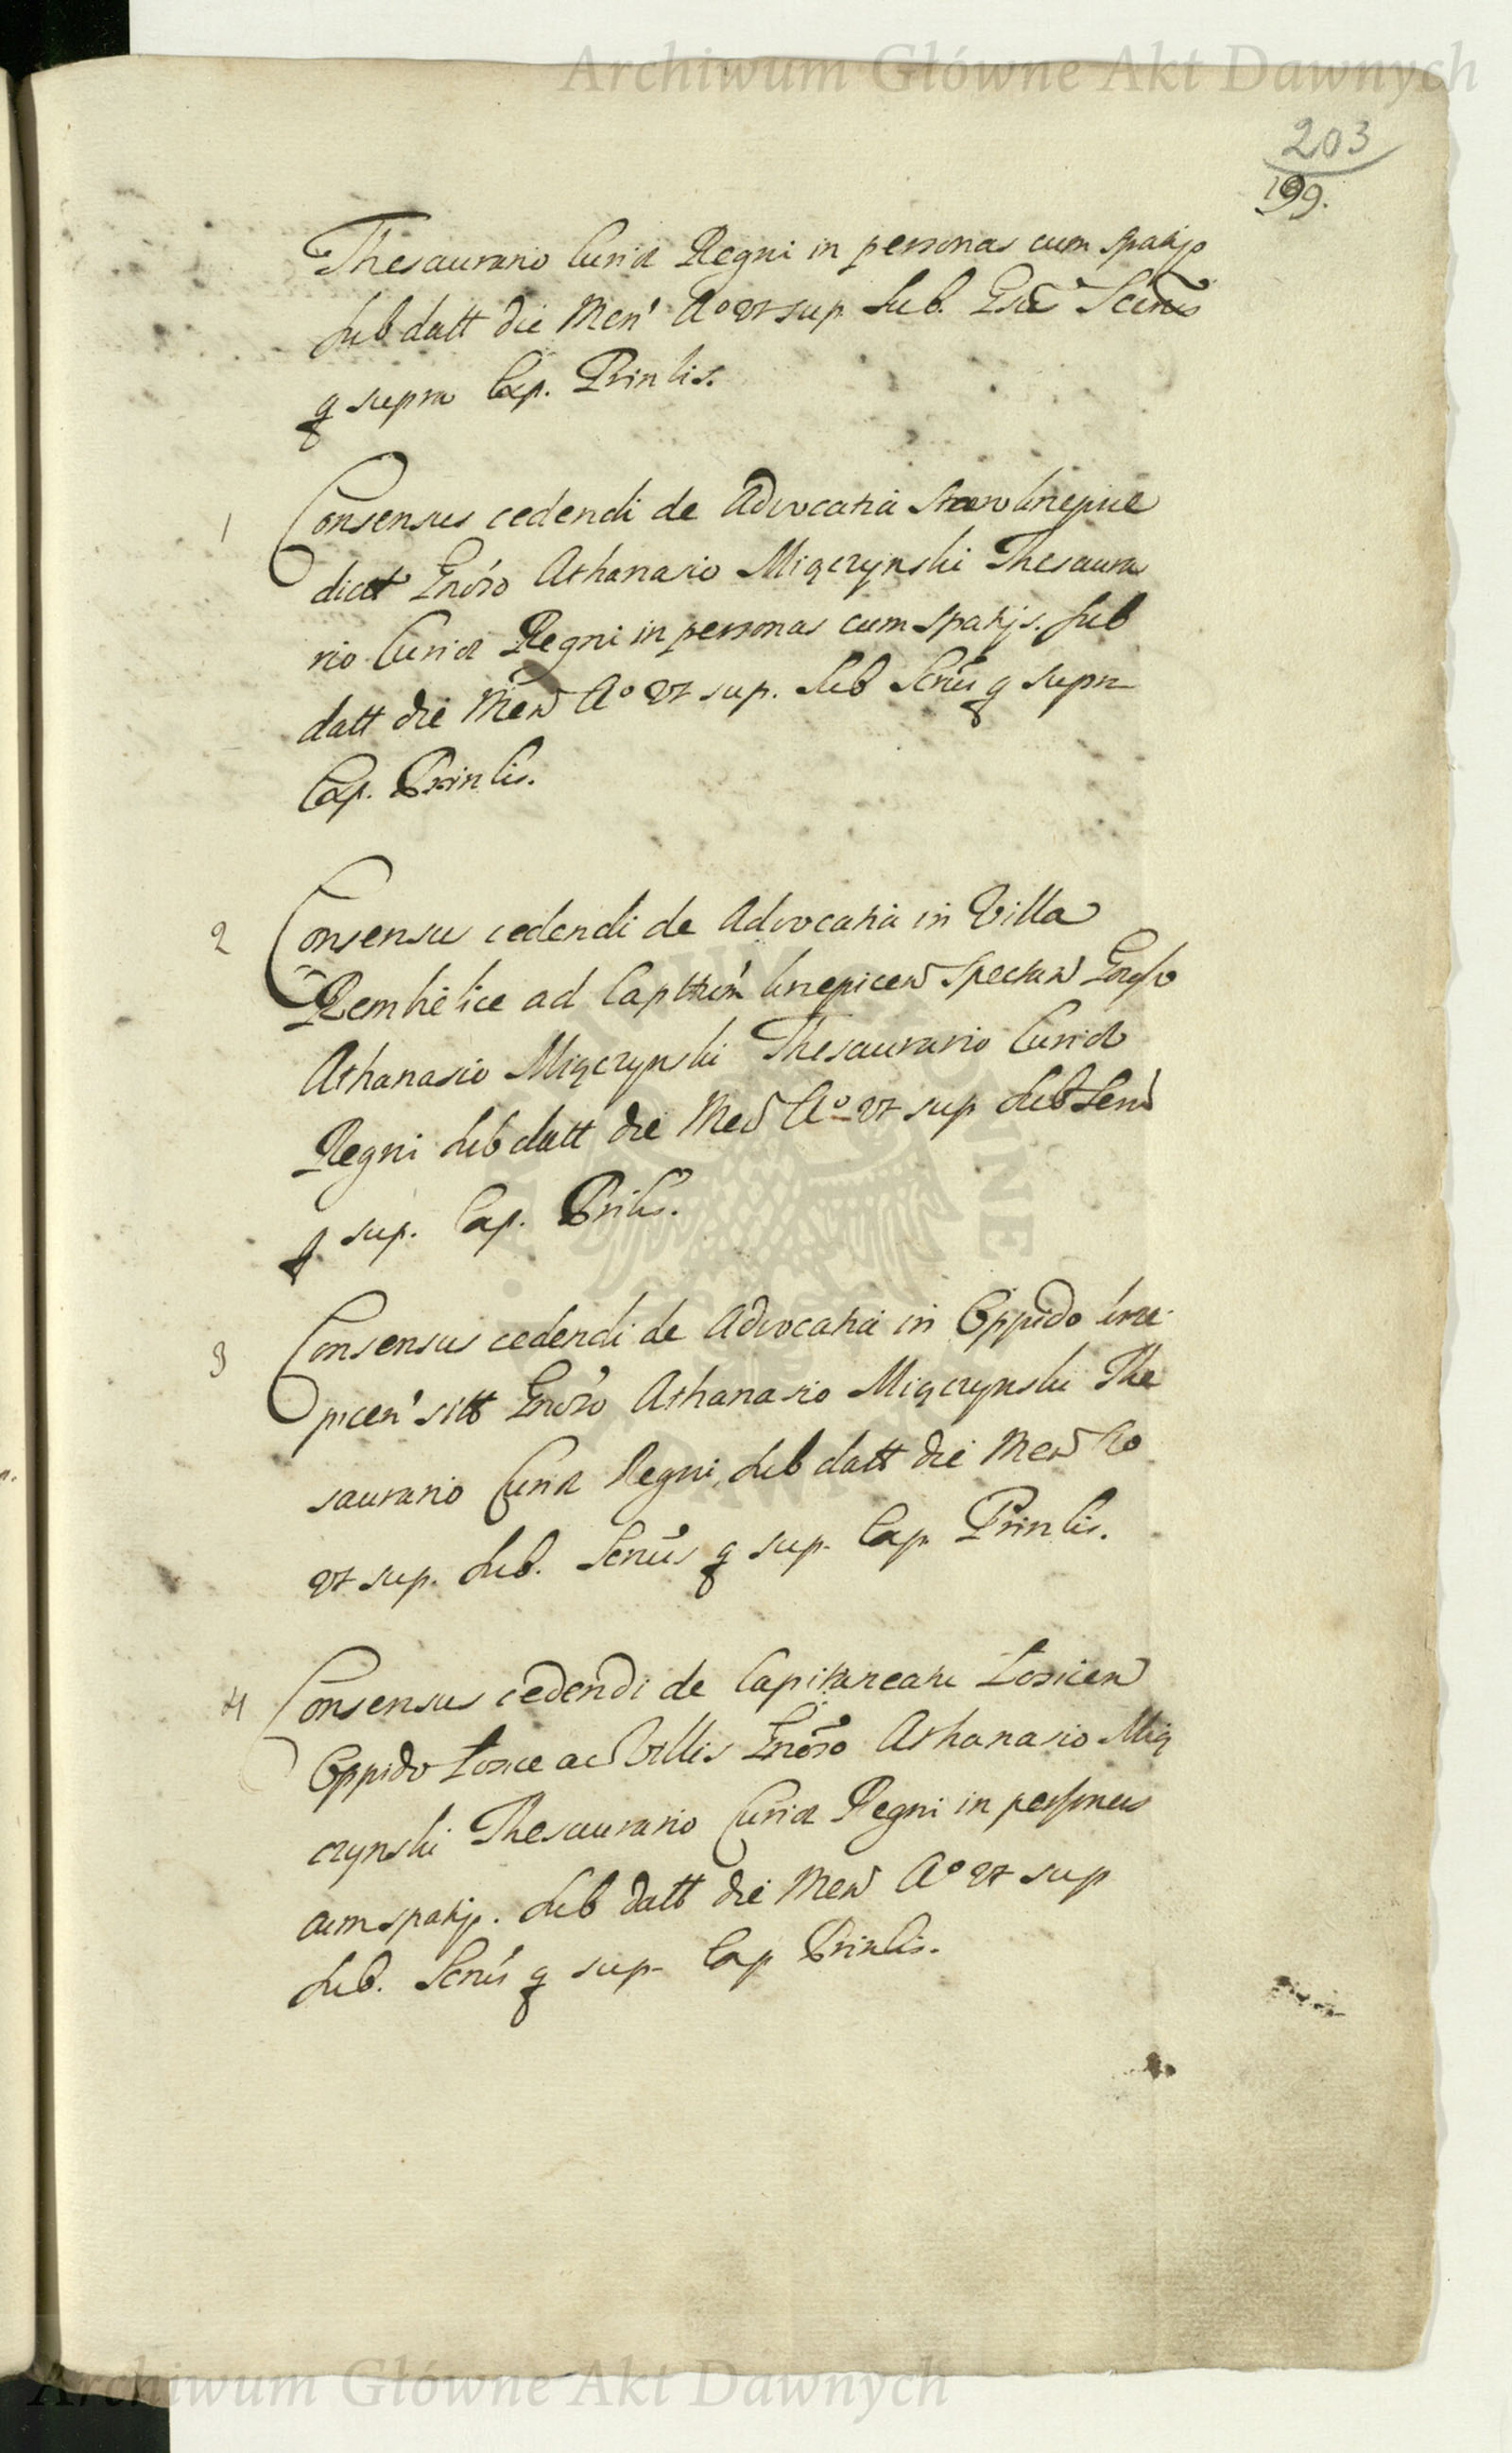 Archiwum Główne Akt Dawnych
203
199.
Thesaurario Curiæ Regni in personas cum spatijs
Sub datt die Men' Ao Vt sup. Sub.
q supra Cap. Prinlis.
1 Consensus cedendi de Advocatia
dict Gnoso Athanasio Miączynski Thesaura
rio Curiæ Regni in personas cum spatijs. Sub
datt die Men Ao Vt sup. Sub Scrius q supra
Cap. Prinlis.
2 Consensus cedendi de Advocatia in Villa
ad Capttum Krzepicen Spectan Gnoso
Athanasio Miączynski Thesaurario Curiæ
Regni Sub datt die Men Ao Vt sup Sub
q sup. Cap. Prilis.
3 Consensus cedendi de Advocatia in Oppido Krze
picen' sitt Gnoso Athanasio Miączynski The
saurario Curiæ Regni, Sub datt die Men Ao
Vt sup. Sub. Scrius q sup. Cap. Prinlis.
4 Consensus cedendi de Capitaneatu Łosicen
Oppido Łosice ac Villis Gnoso Athanasio Mią
czynski Thesaurario Curiæ Regni in personas
cum spatijs. Sub datt die Men Ao Vt sup
Sub. Scrius q sup. Cap Prinlis.
Archiwum Główne Akt Dawnych